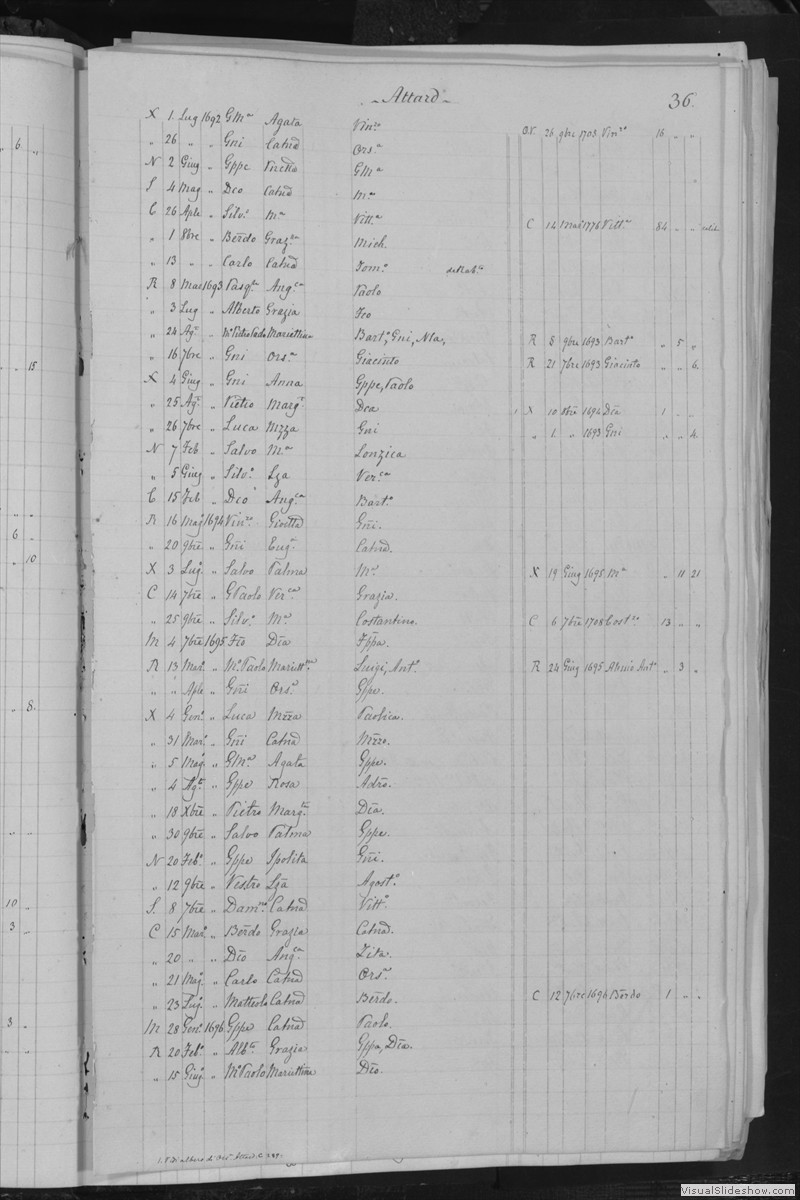 Attard
36.
X 1 Lug 1692 GMa Agata Vinzo O.V. 26 9bre 1703 Vinzo 16 " "
" 26 " " Gni Catnd Orsa
N 2 Giug " Gppe
S 4 Mag " Dco Catnd Ma
C 26 Aple " Silvo Ma Vitta C 14 Mar 1776 Vitta 84 " "
" 1 8bre " Berdo Grazia Mich.
" 13 " " Carlo Catnd Tomo
R 8 Mar 1693 Pasqle Angca Paolo
" 3 Lug " Alberto Grazia Feo
" 24 Ago " Mo Pietro Paolo Mariettina Barto, Gni, Nla, R 8 9bre 1693 Barto " 5 "
" 16 7bre " Gni Orsa Giacinto R 21 7bre 1693 Giacinto " " 6.
X 4 Giug " Gni Anna Gppe, Paolo
" 25 Ago " Pietro Margta Dca 1 X 10 8bre 1694 Dca 1 " "
" 26 7bre " Luca Mzza Gni " 1. " 1693 Gni " " 4.
N 7 Feb " Salvo Ma Lonzica
" 5 Giug " Silvo Lza Verca
C 15 Feb " Dco Angca Barto
R 16 Mag 1694 Vinzo Gioitta Gni.
" 20 9bre " Gni Euga Catnd.
X 3 Lug. " Salvo Palma Ma X 19 Giug 1695 Ma " 11 21
C 14 7bre " GPaolo Verca Grazia.
" 25 9bre " Silvo Ma Costantino. C 6 7bre 1708 Costno 13 " "
M 4 7bre 1695 Feo Dca Fppa.
R 13 Mar. " Mo Paolo Mariettna Luigi, Anto R 24 Giug 1695 Anto " 3 "
" " Aple " Gni Orsa Gppe.
X 4 Geno " Luca Mzza Paolica.
" 31 Mar. " Gni Catnd Mzzo.
" 5 Mag. " GMa Agata Gppe.
" 4 Agto " Gppe Rosa Adreo.
" 18 Xbre " Pietro Margta Dca.
" 30 9bre " Salvo Palma Gppe.
N 20 Febo " Gppe Ipolita Gni.
" 12 9bre " Nestro Lza Agosto
S. 8 7bre " Damno Catnd Vitto
C 15 Mar. " Berdo Grazia Catnd.
" 20 " " Dco Angca Zita.
" 21 Mag. " Carlo Catnd Orsa
" 23 Lug. " Matteolo Catnd Berdo. C 12 7bre 1696 Berdo 1 " "
M 28 Geno 1696 Gppe Catnd Paolo.
R 20 Febo " Albto Grazia Gppa, Dca.
" 15 Giug. " Mo Paolo Mariettina Dco.
6
15
6
10
8.
10
3
3
VisualSlideshow.com